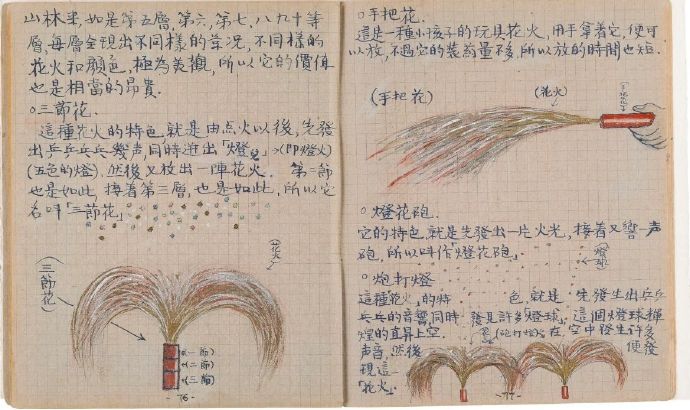 山林来, 如是第五層, 第六, 第七, 八九十等
層, 每層全現出不同樣的景况, 不同樣的
花火和顏色, 極為美觀, 所以它的價值
也是相當的昂貴.
○三節花.
這種花火的特色, 就是由点火以後, 先發
出乒乒乓乓幾声, 同時迸出「燈兒」×(即燈火)
(五色的燈). 然後又放出一陣花火. 第二節
也是如此, 接着第三層, 也是如此, 所以它
名叫「三節花」
(花火)
(三節花)
(一節)
(二節)
(三節)
-76-
○手把花.
這是一種小孩子的玩具花火, 用手拿着它, 便可
以放, 不過它的裝葯量不多, 所以放的時間也短.
(手把花)
(花火)
○燈花砲.
它的特色, 就是先發出一片火光, 接着又響一声
砲, 所以叫作「燈花砲」
○炮打燈
這種花火」的特 色, 就是 先發生出乒乒
乓乓的音響, 同時 發見許多燈球」 這個燈球輝
煌的直昇上空. (砲打燈) 在 空中發生許多
声音, 然後 便發
現這一
「花火」.
-77-